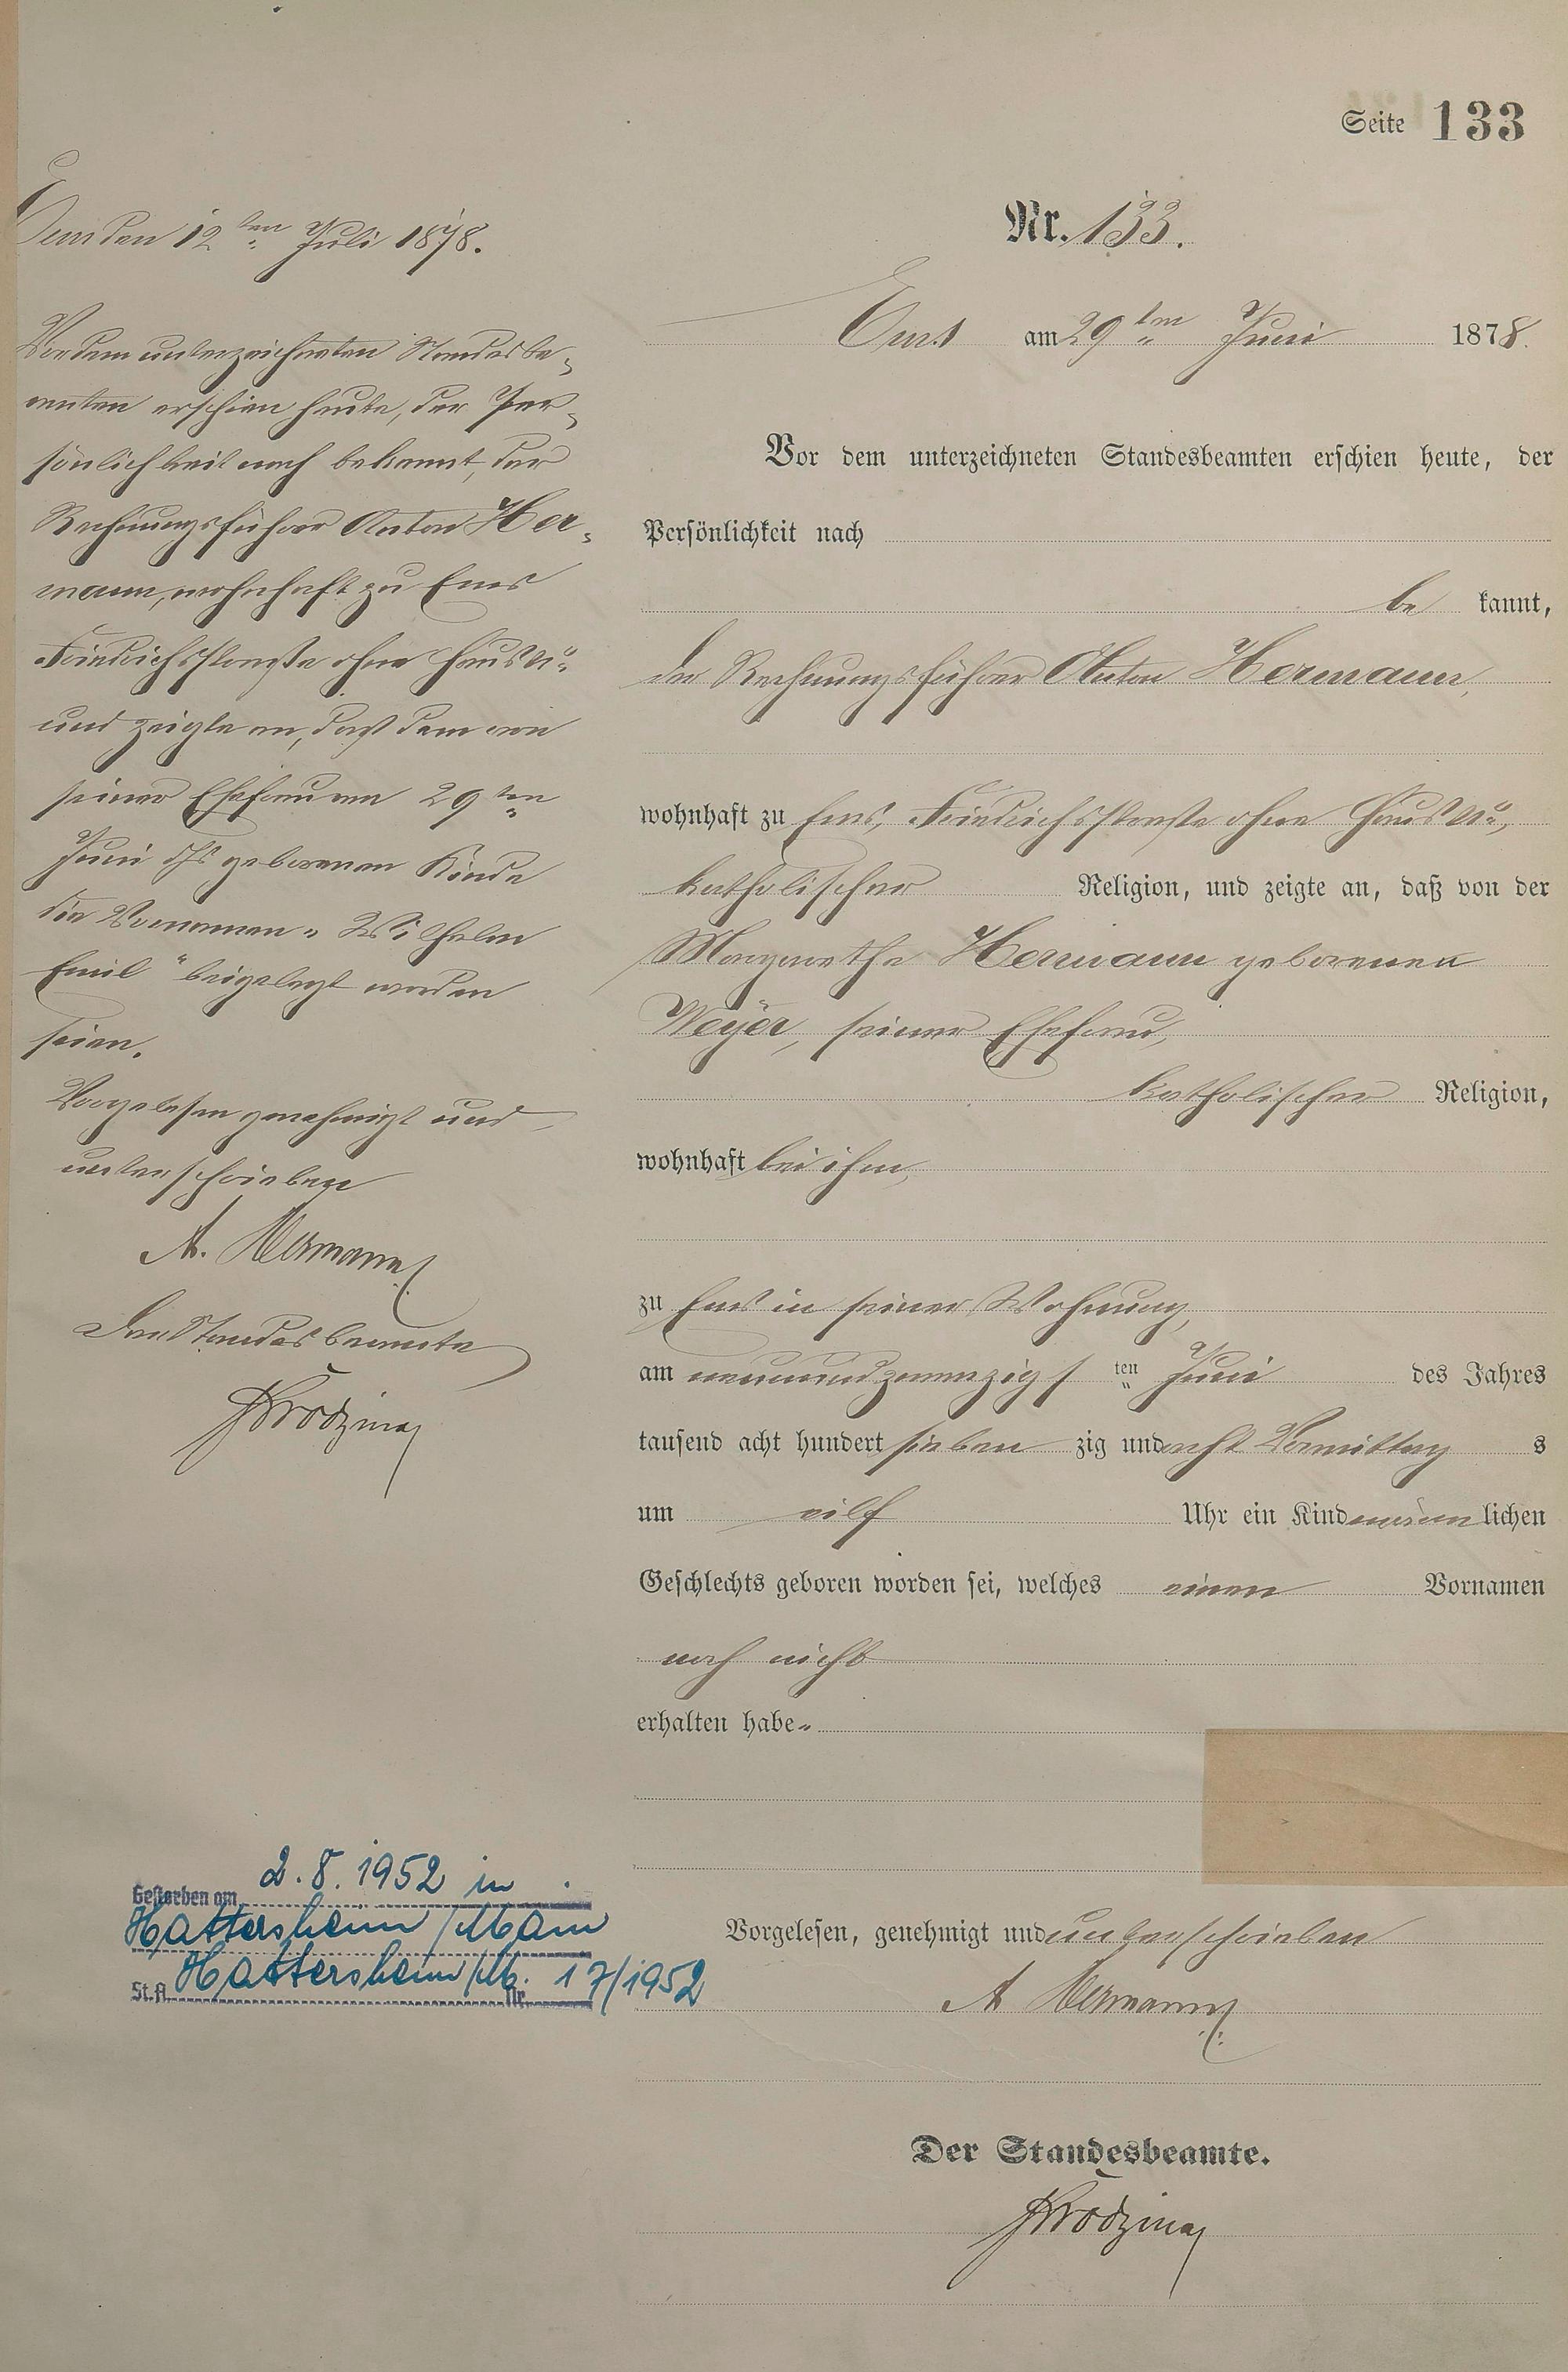 Seite 133
Nr. 133.
Ems am 29ten Juni 1878.
Vor dem unterzeichneten Standesbeamten erschien heute, der
Persönlichkeit nach
be kannt,
der Rechnungsführer Anton Hermann,
wohnhaft zu Ems, Friedrichsstraße ohne Haus No,
katholischer Religion, und zeigte an, daß von der
Margarethe Hermann geborenen
Weyer, seiner Ehefrau,
katholischer Religion,
wohnhaft bei ihm,
zu Ems in seiner Wohnung,
am neunundzwanzigsten Juni des Jahres
tausend acht hundert sieben zig und acht Vormittag s
um eilf Uhr ein Kind männlichen
Geschlechts geboren worden sei, welches einen Vornamen
noch nicht
erhalten habe.
Vorgelesen, genehmigt und unterschrieben
A Hermann
Der Standesbeamte.
Ems den 12ten Juli 1878.
Vor dem unterzeichneten Standesbe-
amten erschien heute, der Per-
sönlichkeit nach bekannt, der
Rechnungsführer Anton Her-
mann, wohnhaft zu Ems
Friedrichsstraße ohne Haus No
und zeigte an, daß dem von
seiner Ehefrau am 29ten
Juni ds geborenen Kinde
die Vornamen „Wilhelm
Emil" beigelegt worden
seien.
Vorgelesen genehmigt und
unterschrieben
A. Hermann
Der Standesbeamte
Gestorben am 2.8.1952 in
Hattersheim/Main
St.A. Hattersheim/M. Nr. 17/1952